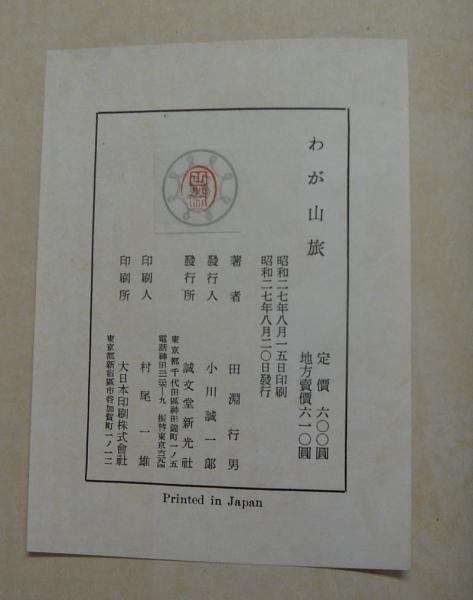 わが山旅
定價 六〇〇圓
地方賣價六一〇圓
昭和二七年八月一五日印刷
昭和二七年八月二〇日發行
著者 田淵行男
發行人 小川誠一郎
發行所 誠文堂新光社
東京都千代田區神田錦町一ノ五
印刷人 村尾一雄
印刷所 大日本印刷株式會社
東京都新宿區市谷加賀町一ノ一二
Printed in Japan